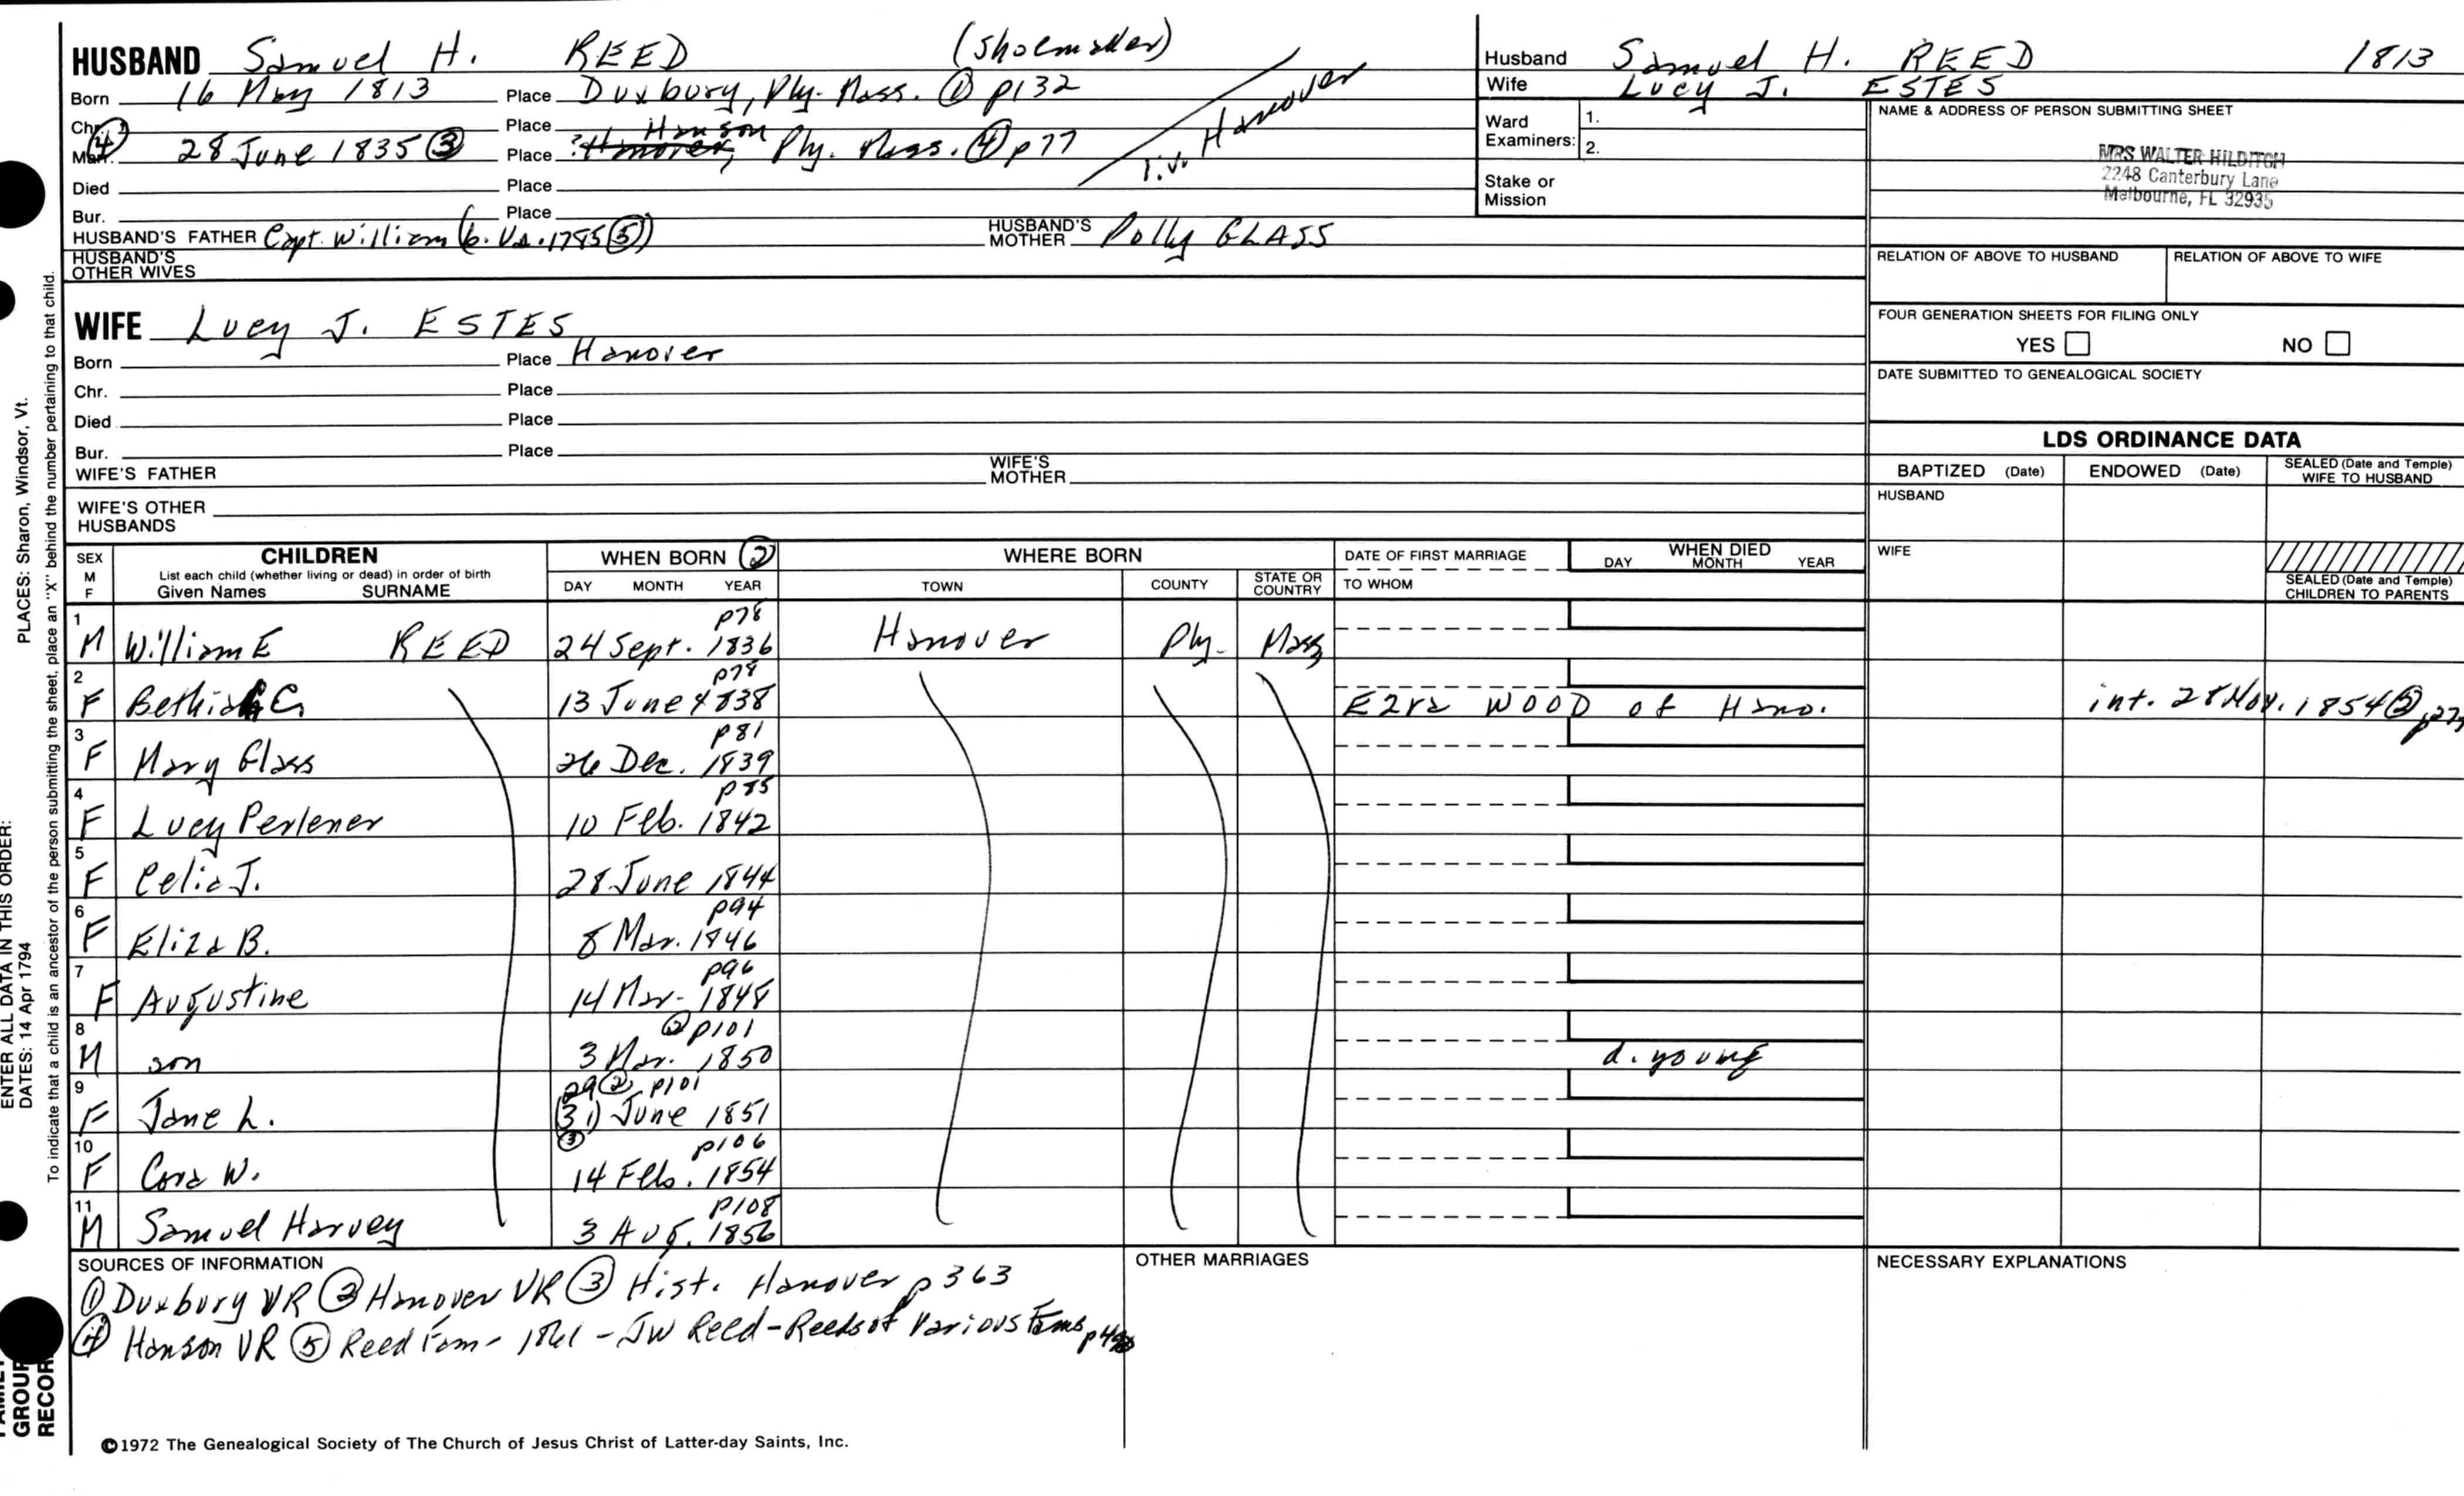 HUSBAND Samuel H. REED (Shoemaker)
Born 16 May 1813 Place Duxbury, Ply. Mass. ① p132
Chr. Place Hanson
④ Marr. 28 June 1835 ③ Place ? Hanover, Ply. Mass. ④ p77
liv. Hanover
Died Place
Bur. Place
HUSBAND'S FATHER Capt. William (b. Va. 1785 ⑤) HUSBAND'S MOTHER Polly GLASS
HUSBAND'S OTHER WIVES
WIFE Lucy J. ESTES
Born Place Hanover
Chr. Place
Died Place
Bur. Place
WIFE'S FATHER WIFE'S MOTHER
WIFE'S OTHER HUSBANDS
Husband Samuel H. REED 1813
Wife Lucy J. ESTES
Ward Examiners: 1.
2.
Stake or Mission
NAME & ADDRESS OF PERSON SUBMITTING SHEET
MRS WALTER HILDITCH
2248 Canterbury Lane
Melbourne, FL 32935
RELATION OF ABOVE TO HUSBAND RELATION OF ABOVE TO WIFE
FOUR GENERATION SHEETS FOR FILING ONLY
YES NO
DATE SUBMITTED TO GENEALOGICAL SOCIETY
LDS ORDINANCE DATA
BAPTIZED (Date) ENDOWED (Date) SEALED (Date and Temple) WIFE TO HUSBAND
HUSBAND
WIFE
SEALED (Date and Temple) CHILDREN TO PARENTS
SEX M F
CHILDREN
List each child (whether living or dead) in order of birth
Given Names SURNAME
WHEN BORN ②
DAY MONTH YEAR
WHERE BORN
TOWN COUNTY STATE OR COUNTRY
DATE OF FIRST MARRIAGE
TO WHOM
WHEN DIED
DAY MONTH YEAR
1 M William E REED 24 Sept. 1836 p78 Hanover Ply. Mass
2 F Bethiah G 13 June 1838 p78 Ezra WOOD of Hano. int. 28 Nov. 1854 ②
3 F Mary Glass 26 Dec. 1839 p81
4 F Lucy Perlener 10 Feb. 1842 p85
5 F Celia J. 28 June 1844
6 F Eliza B. 8 Mar. 1846 p94
7 F Augustine 14 Mar. 1848 p96
8 M son 3 Mar. 1850 ② p101 d. young
9 F Jane L. 29 ② p101 (31) June 1851 ③
10 F Cora W. 14 Feb. 1854 p106
11 M Samuel Harvey 3 Aug. 1856 p108
SOURCES OF INFORMATION
① Duxbury VR ② Hanover VR ③ Hist. Hanover p363
④ Hanson VR ⑤ Reed Fam - 1861 - JW Reed - Reeds of Various Fams
OTHER MARRIAGES
NECESSARY EXPLANATIONS
©1972 The Genealogical Society of The Church of Jesus Christ of Latter-day Saints, Inc.
ENTER ALL DATA IN THIS ORDER:
DATES: 14 Apr 1794 PLACES: Sharon, Windsor, Vt.
To indicate that a child is an ancestor of the person submitting the sheet, place an "X" behind the number pertaining to that child.
FAMILY GROUP RECORD